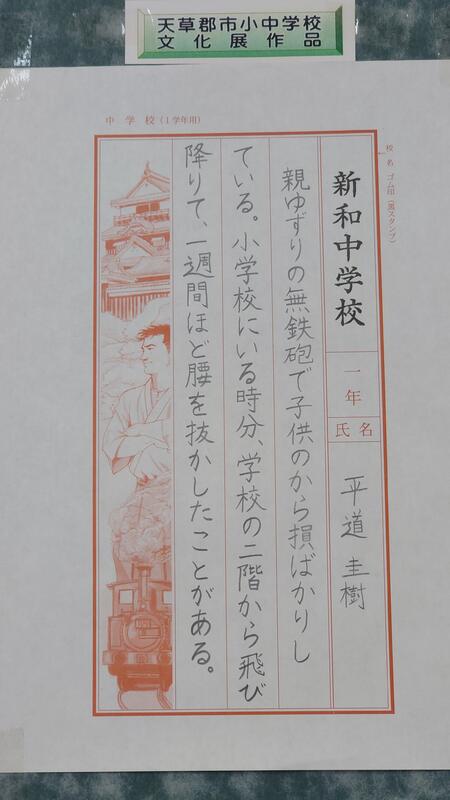 天草郡市小中学校
文化展作品
中学校(1学年用)
校名ゴム印(黒スタンプ)
新和中学校
一年
氏名
平道圭樹
親ゆずりの無鉄砲で子供のから損ばかりし
ている。小学校にいる時分、学校の二階から飛び
降りて、一週間ほど腰を抜かしたことがある。